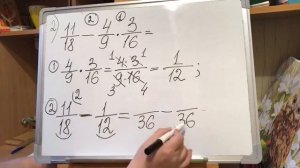 2) 11/18 - 4/9 · 3/16 =
① 4/9 · 3/16 = 4·3/9·16 = 1/12 ;
② 11/18 - 1/12 = /36 - /36